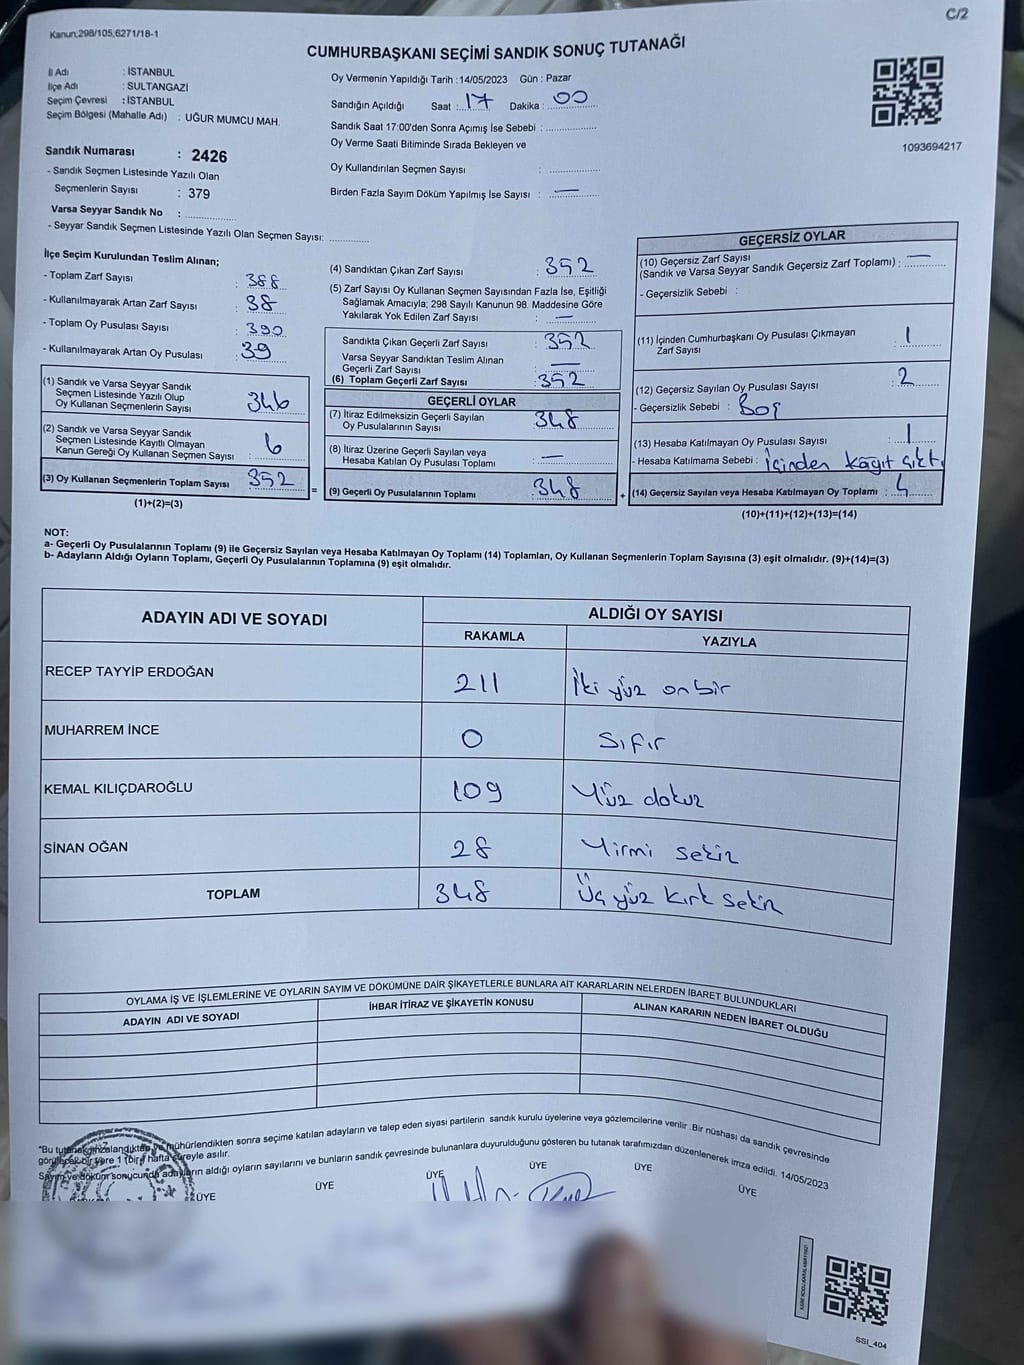 Kanun;298/105,6271/18-1
C/2
CUMHURBAŞKANI SEÇİMİ SANDIK SONUÇ TUTANAĞI
İl Adı : İSTANBUL
İlçe Adı : SULTANGAZİ
Seçim Çevresi : İSTANBUL
Seçim Bölgesi (Mahalle Adı) : UĞUR MUMCU MAH.
Sandık Numarası : 2426
- Sandık Seçmen Listesinde Yazılı Olan
Seçmenlerin Sayısı : 379
Varsa Seyyar Sandık No : ..................
- Seyyar Sandık Seçmen Listesinde Yazılı Olan Seçmen Sayısı: ..............
Oy Vermenin Yapıldığı Tarih :14/05/2023 Gün : Pazar
Sandığın Açıldığı Saat : 17 Dakika : 00
Sandık Saat 17:00'den Sonra Açımış İse Sebebi : ..................
Oy Verme Saati Bitiminde Sırada Bekleyen ve
Oy Kullandırılan Seçmen Sayısı : ..................
Birden Fazla Sayım Döküm Yapılmış İse Sayısı : —
1093694217
İlçe Seçim Kurulundan Teslim Alınan;
- Toplam Zarf Sayısı : 388
- Kullanılmayarak Artan Zarf Sayısı : 38
- Toplam Oy Pusulası Sayısı : 390
- Kullanılmayarak Artan Oy Pusulası : 39
(1) Sandık ve Varsa Seyyar Sandık
Seçmen Listesinde Yazılı Olup
Oy Kullanan Seçmenlerin Sayısı 346
(2) Sandık ve Varsa Seyyar Sandık
Seçmen Listesinde Kayıtlı Olmayan
Kanun Gereği Oy Kullanan Seçmen Sayısı : 6
(3) Oy Kullanan Seçmenlerin Toplam Sayısı : 352
(1)+(2)=(3)
(4) Sandıktan Çıkan Zarf Sayısı : 352
(5) Zarf Sayısı Oy Kullanan Seçmen Sayısından Fazla İse, Eşitliği
Sağlamak Amacıyla; 298 Sayılı Kanunun 98. Maddesine Göre
Yakılarak Yok Edilen Zarf Sayısı : —
Sandıkta Çıkan Geçerli Zarf Sayısı : 352
Varsa Seyyar Sandıktan Teslim Alınan
Geçerli Zarf Sayısı : —
(6) Toplam Geçerli Zarf Sayısı : 352
GEÇERLİ OYLAR
(7) İtiraz Edilmeksizin Geçerli Sayılan
Oy Pusulalarının Sayısı : 348
(8) İtiraz Üzerine Geçerli Sayılan veya
Hesaba Katılan Oy Pusulası Toplamı : —
= (9) Geçerli Oy Pusulalarının Toplamı : 348 +
GEÇERSİZ OYLAR
(10) Geçersiz Zarf Sayısı
(Sandık ve Varsa Seyyar Sandık Geçersiz Zarf Toplamı) : —
- Geçersizlik Sebebi :
(11) İçinden Cumhurbaşkanı Oy Pusulası Çıkmayan
Zarf Sayısı : 1
(12) Geçersiz Sayılan Oy Pusulası Sayısı : 2
- Geçersizlik Sebebi : Boş
(13) Hesaba Katılmayan Oy Pusulası Sayısı : 1
- Hesaba Katılmama Sebebi : İçinden kağıt çıktı
(14) Geçersiz Sayılan veya Hesaba Katılmayan Oy Toplamı : 4
(10)+(11)+(12)+(13)=(14)
NOT:
a- Geçerli Oy Pusulalarının Toplamı (9) ile Geçersiz Sayılan veya Hesaba Katılmayan Oy Toplamı (14) Toplamları, Oy Kullanan Seçmenlerin Toplam Sayısına (3) eşit olmalıdır. (9)+(14)=(3)
b- Adayların Aldığı Oyların Toplamı, Geçerli Oy Pusulalarının Toplamına (9) eşit olmalıdır.
ADAYIN ADI VE SOYADI
ALDIĞI OY SAYISI
RAKAMLA YAZIYLA
RECEP TAYYİP ERDOĞAN 211 İki yüz onbir
MUHARREM İNCE 0 Sıfır
KEMAL KILIÇDAROĞLU 109 Yüz dokuz
SİNAN OĞAN 28 Yirmi sekiz
TOPLAM 348 Üç yüz kırk sekiz
OYLAMA İŞ VE İŞLEMLERİNE VE OYLARIN SAYIM VE DÖKÜMÜNE DAİR ŞİKAYETLERLE BUNLARA AİT KARARLARIN NELERDEN İBARET BULUNDUKLARI
ADAYIN ADI VE SOYADI İHBAR İTİRAZ VE ŞİKAYETİN KONUSU ALINAN KARARIN NEDEN İBARET OLDUĞU
"Bu tutanak imzalandıktan ve mühürlendikten sonra seçime katılan adayların ve talep eden siyasi partilerin sandık kurulu üyelerine veya gözlemcilerine verilir .Bir nüshası da sandık çevresinde
görülecek bir yere 1 (bir) hafta süreyle asılır.
Sayım ve döküm sonucunda adayların aldığı oyların sayılarını ve bunların sandık çevresinde bulunanlara duyurulduğunu gösteren bu tutanak tarafımızdan düzenlenerek imza edildi. 14/05/2023
ÜYE ÜYE ÜYE ÜYE ÜYE ÜYE
SSİ_404